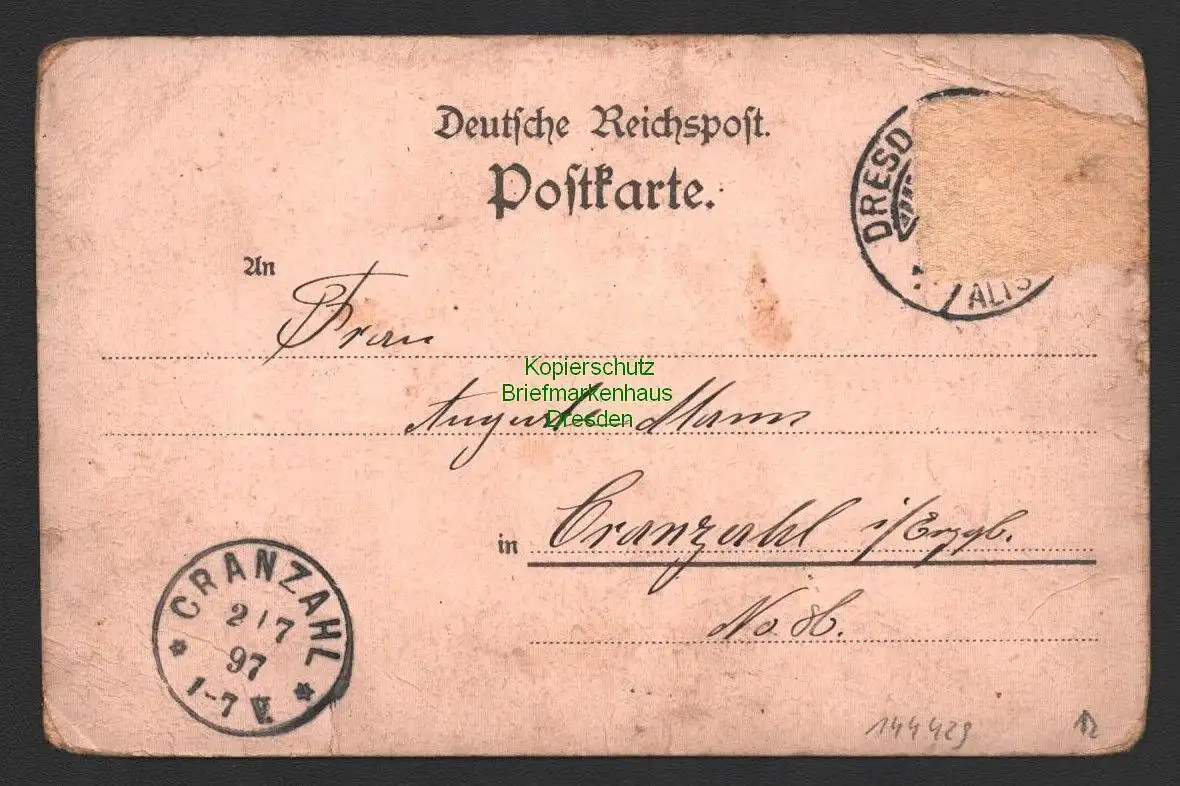 Deutsche Reichspost.
Postkarte.
DRESD
ALTS
An
Frau
Kopierschutz
Briefmarkenhaus
Dresden
Auguste Mann
in Cranzahl i/Erzgb.
CRANZAHL
2/7
97
1-7 V.
No.
144429
12